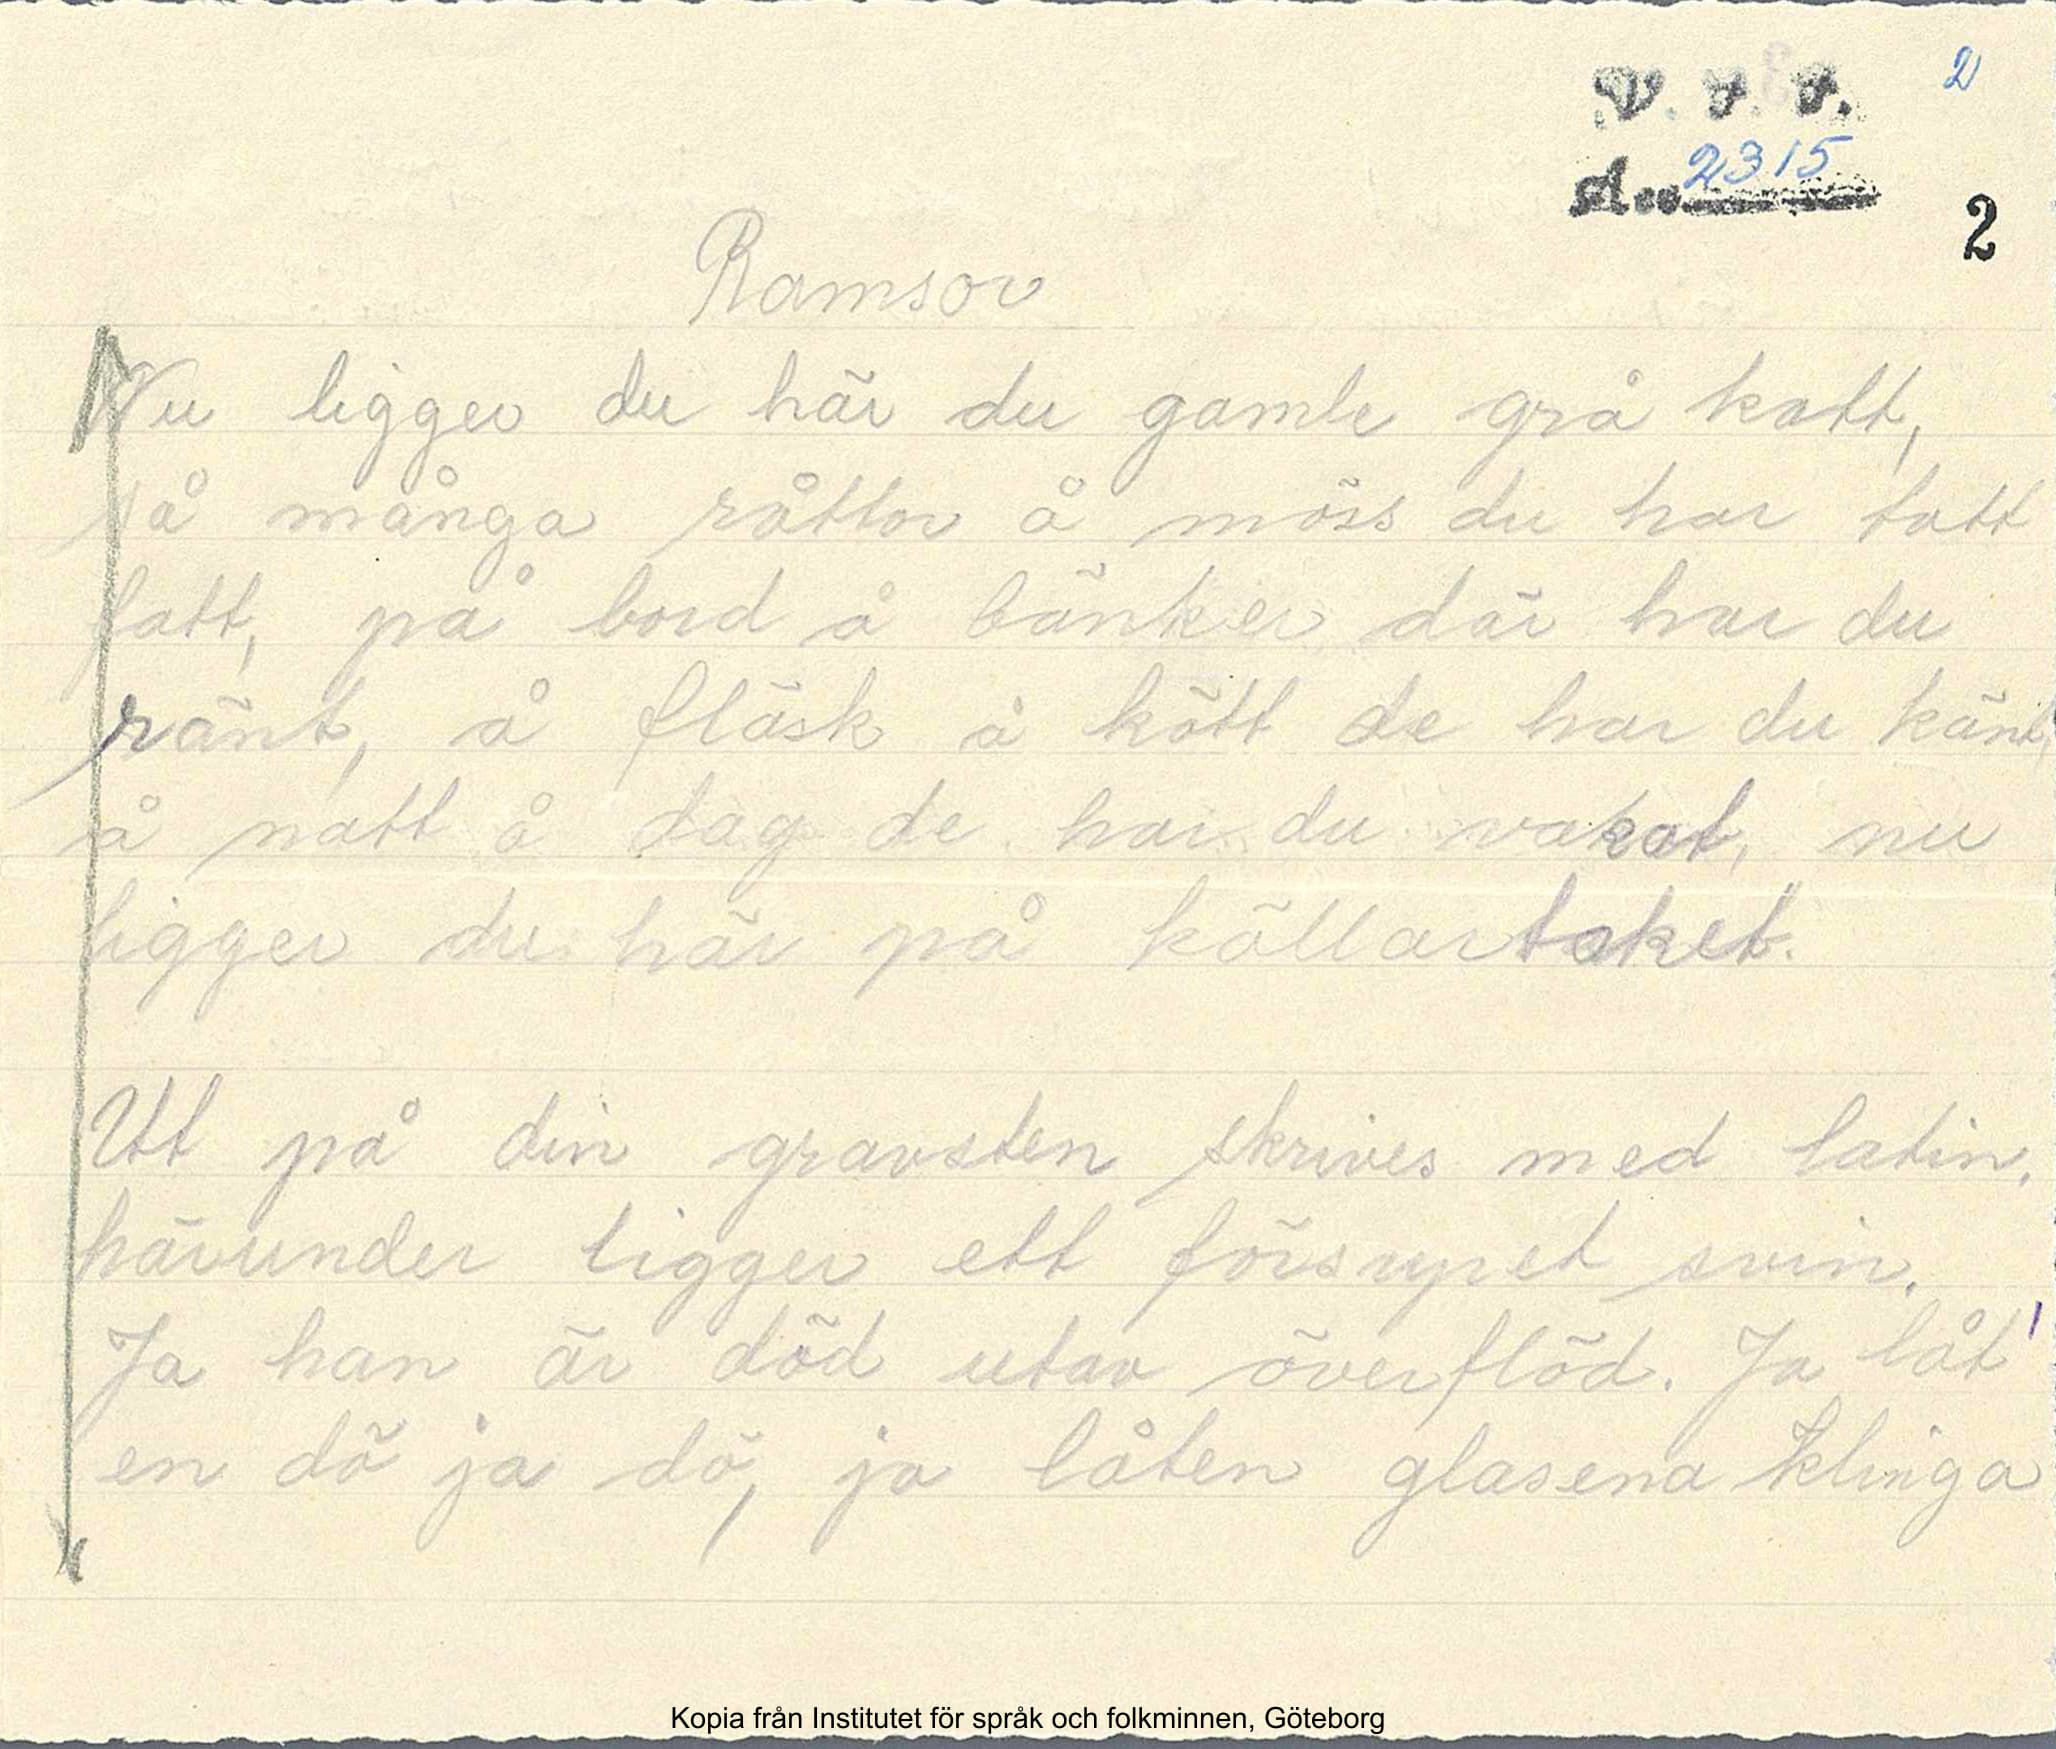 2
V. F. F.
Acc 2315
2
Ramsor
Nu ligger du här du gamle grå katt,
så många råttor å möss du har tatt
fatt, på bord å bänker där har du
ränt, å fläsk å kött de har du känt,
å natt å dag de har du vakat, nu
ligger du här på källartaket.
Utt på din gravsten skrives med latin.
härunder ligger ett försupet svin.
Ja han är död utav överflöd. Ja låt
en dö ja dö, ja låten glasena klinga
Kopia från Institutet för språk och folkminnen, Göteborg